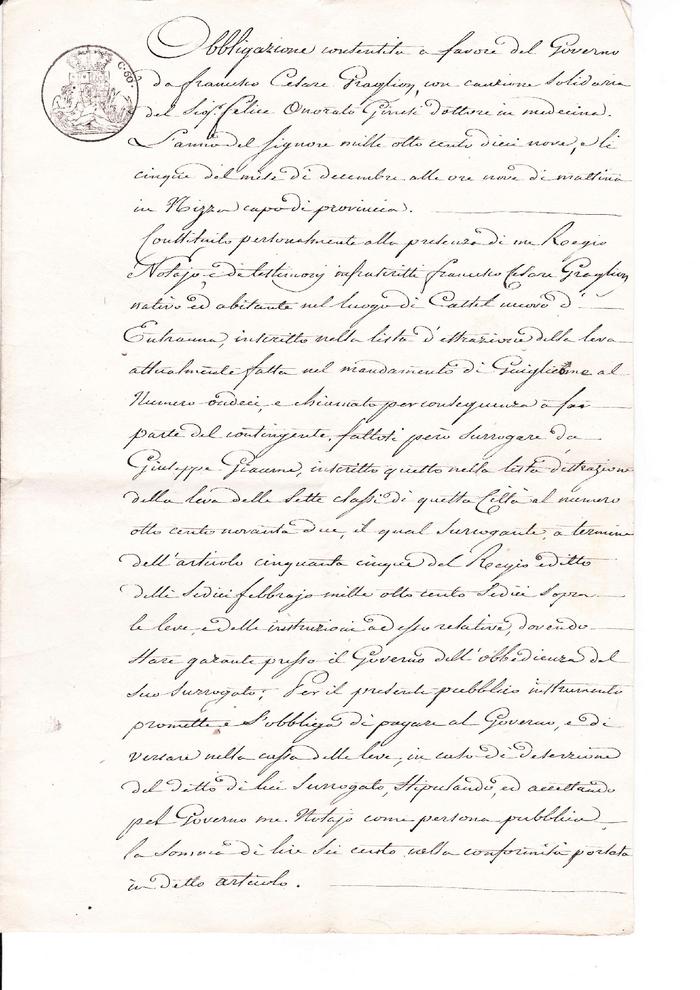 C. 50.
Obbligazione consentita a favore del Governo
da francesco Cesare Graglion, con cauzione solidaria
del Sigr. Felice Onorato Ginesi Dottore in medecina.
L'anno del signore mille otto cento dieci nove, e li
cinque del mese di decembre alle ore nove di mattina
in Nizza capo di provincia.
Constituito personalmente alla presenza di me Regio
Notajo e de testimonj infrascritti francesco Cesare Graglion
nativo ed abitante nel luogo di Castel nuovo d'
Entrauna, inscritto nella lista d'estrazione della leva
attualmente fatta nel mandamento di Guiglielme al
Numero ondeci, e chiamato per conseguenza a far
parte del contingente, fattosi però surrogare da
Giuseppe Giaume, inscritto questo nella lista d'estrazione
della leva delle sette classi di questa Città al numero
otto cento novanta due, il qual surrogante, a termine
dell'articolo cinquanta cinque del Regio editto
delli sedici febbrajo mille otto cento sedici sopra
le leve, e delle instruzioni ad esso relative, dovendo
stare garante presso il Governo dell'obbedienza del
suo surrogato; Per il presente pubblico instrumento
promette e s'obbliga di pagare al Governo, e di
versare nella cassa delle leve, in caso di deserzione
del detto di lui surrogato, stipulando, ed accettando
pel Governo me Notajo come persona pubblica,
la somma di lire sei cento nella conformità portata
in detto articolo.